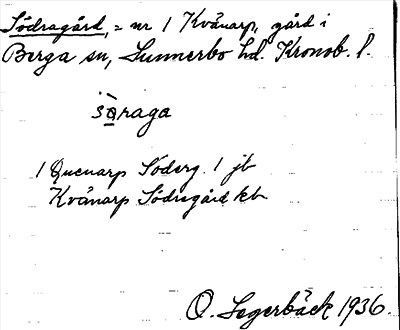 Södragård, = nr 1 Kvänarp, gård i
Berga sn, Sunnerbo hd. Kronob. l.
sə̀raga
1 Quenarp Söderg. 1 jb
Kvänarp Södregård kb
O. Segerbäck 1936.